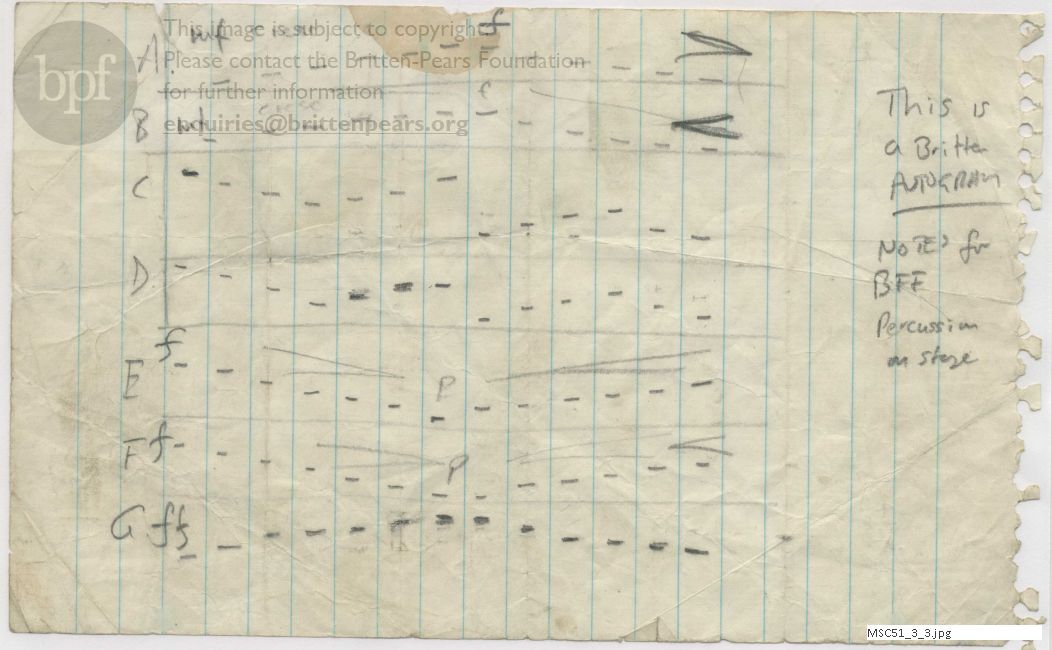 This image is subject to copyright
Please contact the Britten-Pears Foundation
for further information
enquiries@brittenpears.org
bpf
A. mf cresc f
B mf cresc f
C
D
E f P
F f P
G ff
This is
a Britten
AUTOGRAPH
NOTES for
BFF
Percussion
on stage
MSC51_3_3.jpg